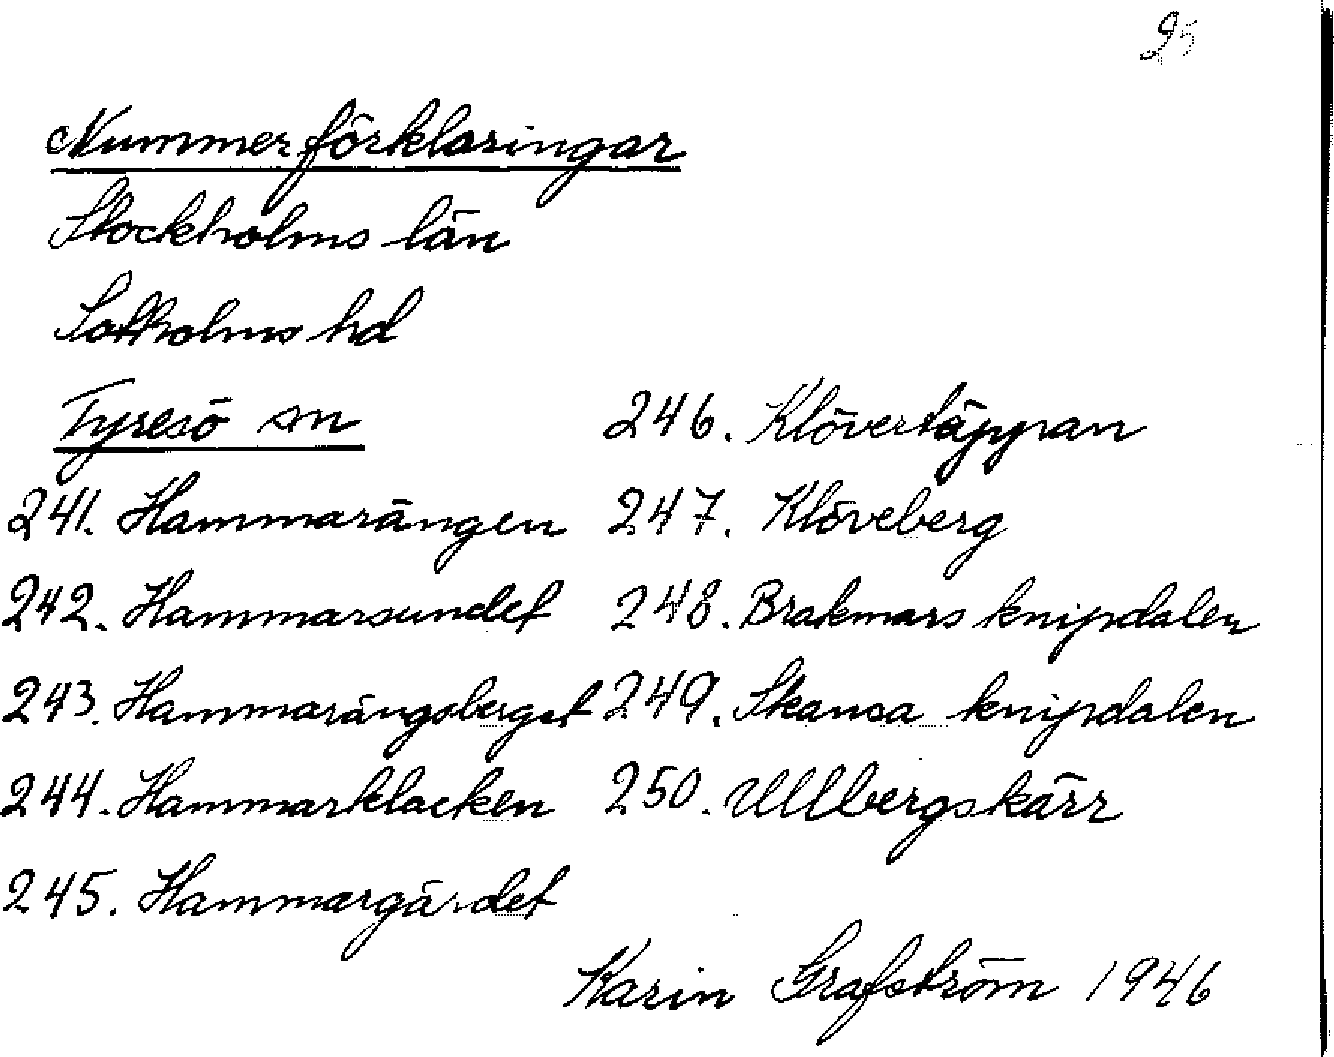 25
Nummerförklaringar
Stockholms län
Sotholms hd
Tyresö sn
241. Hammarängen
242. Hammarsundet
243. Hammarängsberget
244. Hammarklacken
245. Hammargärdet
246. Klövertäppan
247. Klöveberg
248. Brakmars knipdalen
249. Skansa knipdalen
250. Ullbergskärr
Karin Grafström 1946